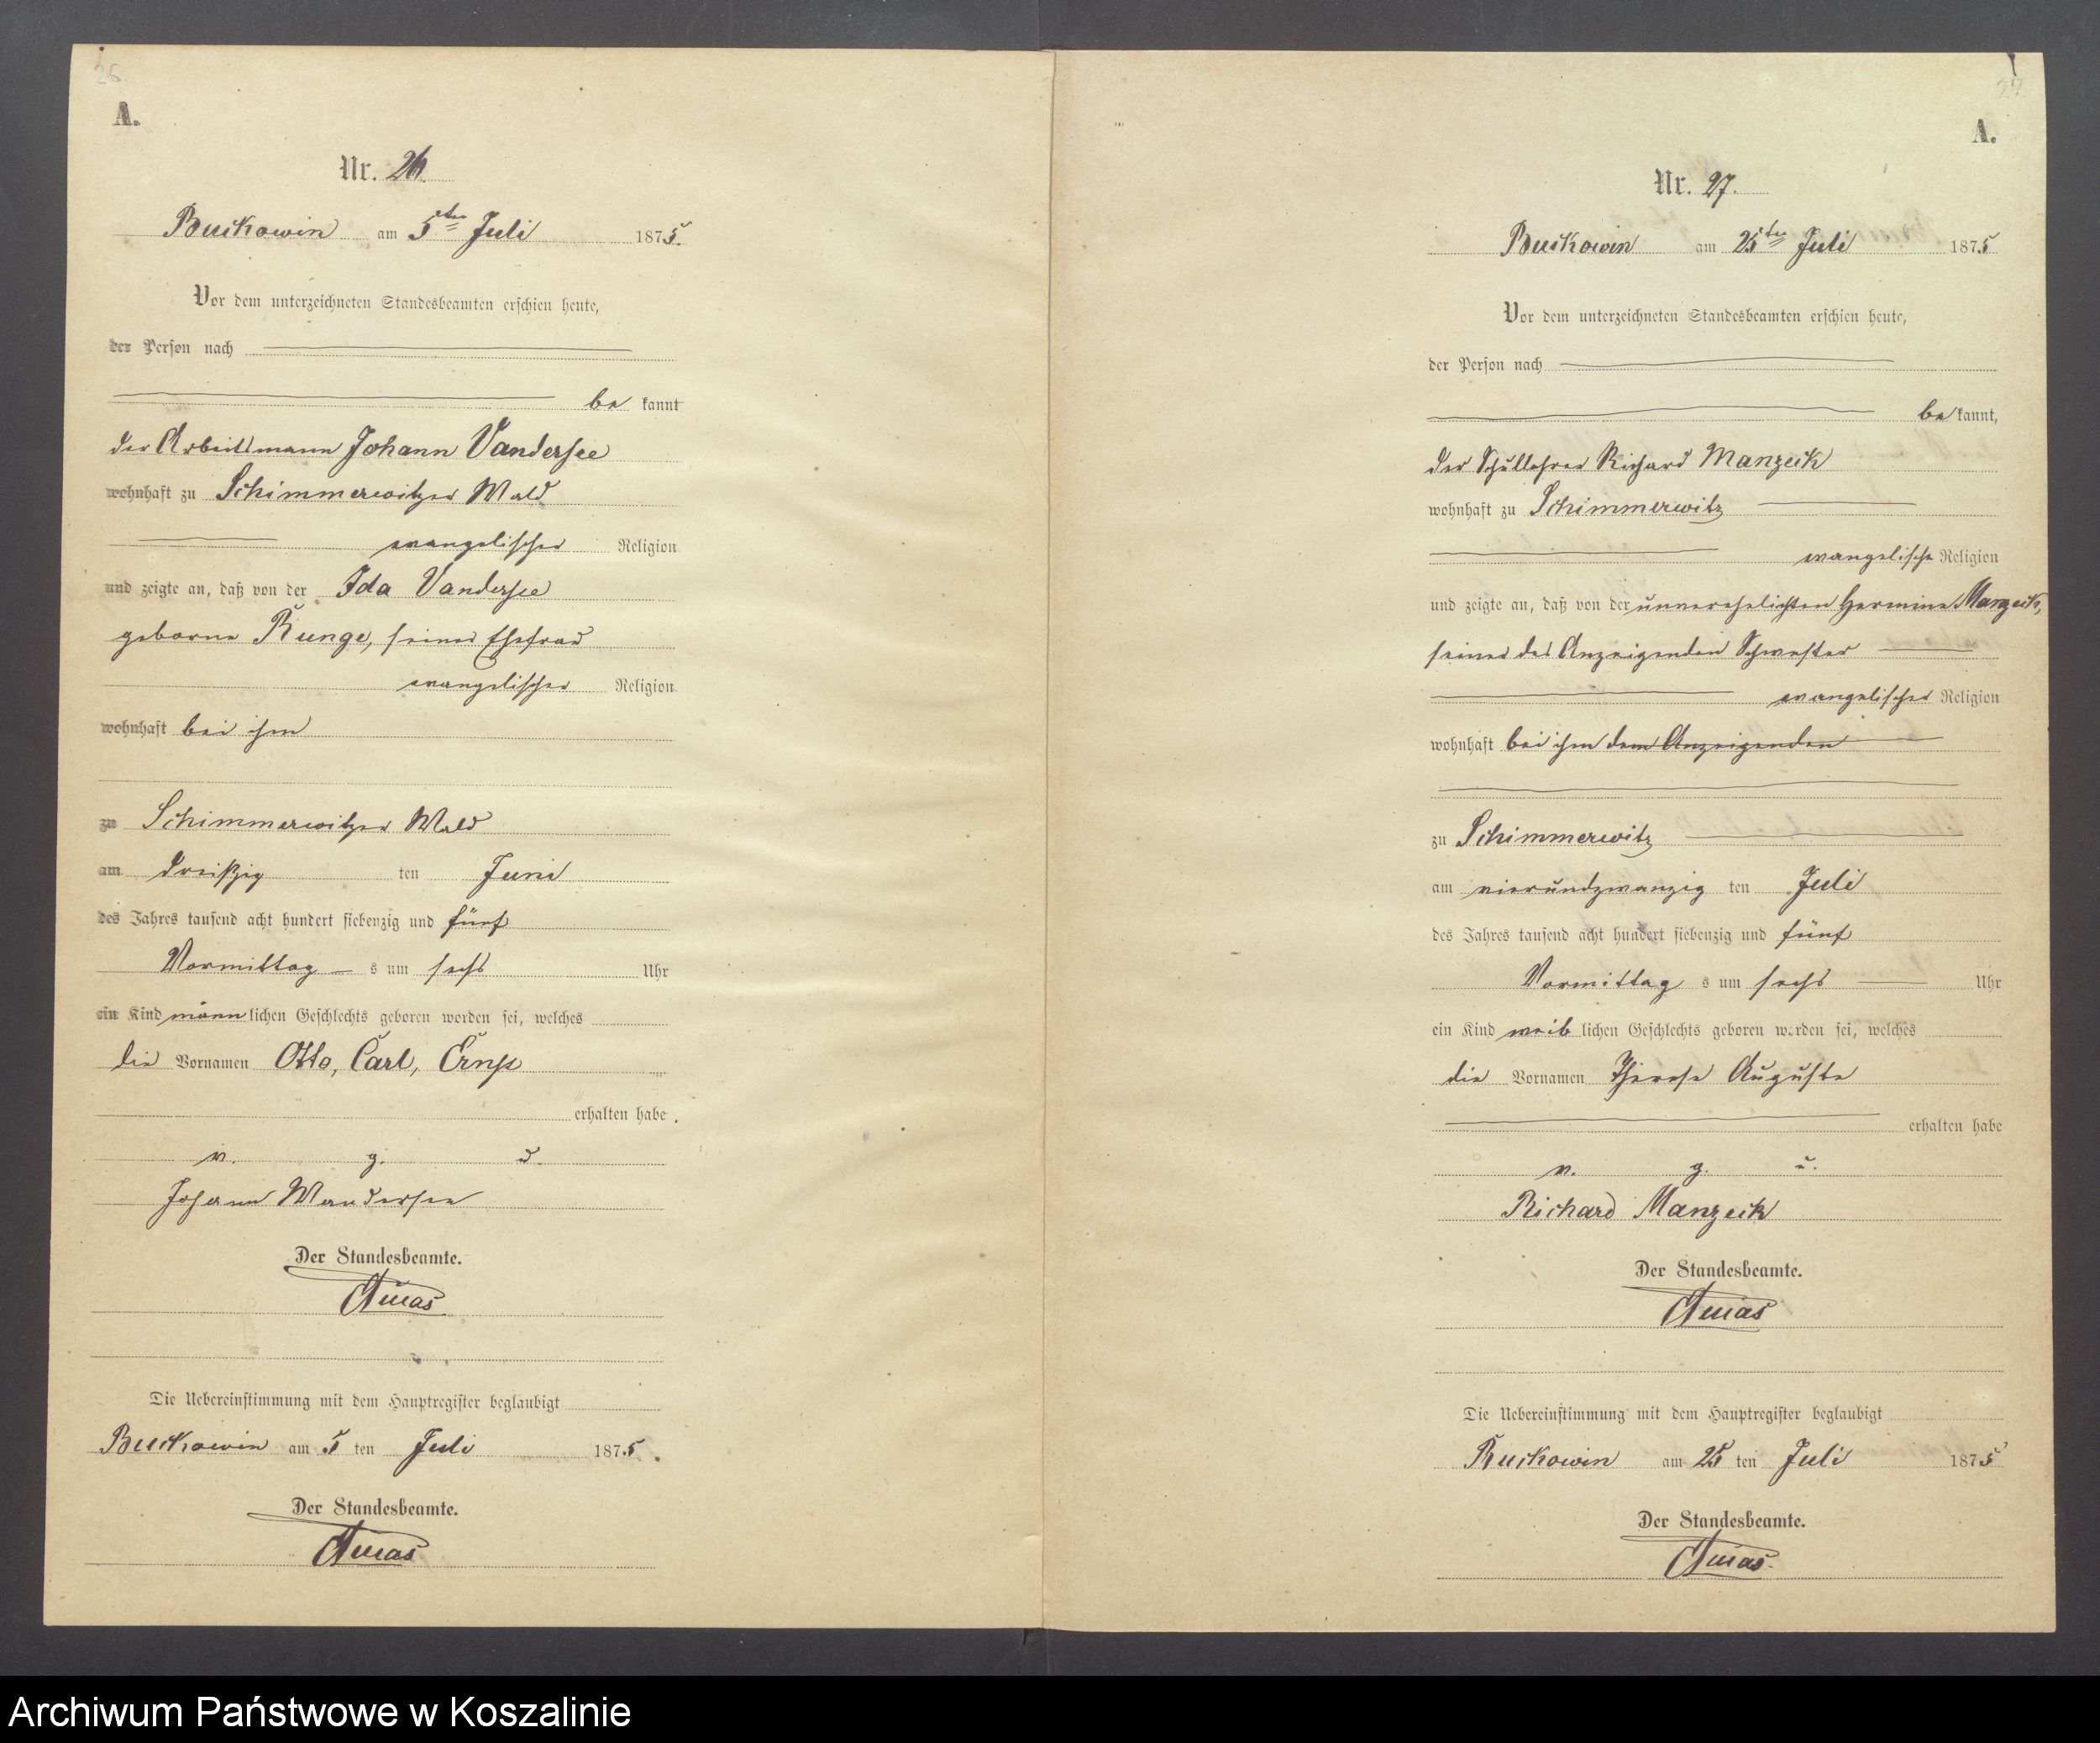 26.
A.
Nr. 26.
Buckowin am 5ten Juli 1875.
Vor dem unterzeichneten Standesbeamten erschien heute,
der Person nach
be kannt
der Arbeitsmann Johann Vandersee
wohnhaft zu Schimmerwitzer Wald
evangelischer Religion
und zeigte an, daß von der Ida Vandersee
geborne Runge, seiner Ehefrau
evangelischer Religion
wohnhaft bei ihm
zu Schimmerwitzer Wald
am dreißig ten Juni
des Jahres tausend acht hundert siebenzig und fünf
Vormittag s um sechs Uhr
ein Kind männ lichen Geschlechts geboren worden sei, welches
die Vornamen Otto, Carl, Ernst
erhalten habe.
v. g. u.
Johann Wandersee
Der Standesbeamte.
Die Uebereinstimmung mit dem Hauptregister beglaubigt
Buckowin am 5 ten Juli 1875.
Der Standesbeamte.
27
A.
Nr. 27.
Buckowin am 25ten Juli 1875
Vor dem unterzeichneten Standesbeamten erschien heute,
der Person nach
be kannt,
der Schullehrer Richard Manzeck
wohnhaft zu Schimmerwitz
evangelische Religion
und zeigte an, daß von der unverehelichten Hermine Manzeck,
seiner des Anzeigenden Schwester
evangelischer Religion
wohnhaft bei ihm dem Anzeigenden
zu Schimmerwitz
am vierundzwanzig ten Juli
des Jahres tausend acht hundert siebenzig und fünf
Vormittag s um sechs Uhr
ein Kind weib lichen Geschlechts geboren worden sei, welches
die Vornamen Therese Auguste
erhalten habe
v. g. u.
Richard Manzeck
Der Standesbeamte.
Die Uebereinstimmung mit dem Hauptregister beglaubigt
Buckowin am 25 ten Juli 1875
Der Standesbeamte.
Archiwum Państwowe w Koszalinie